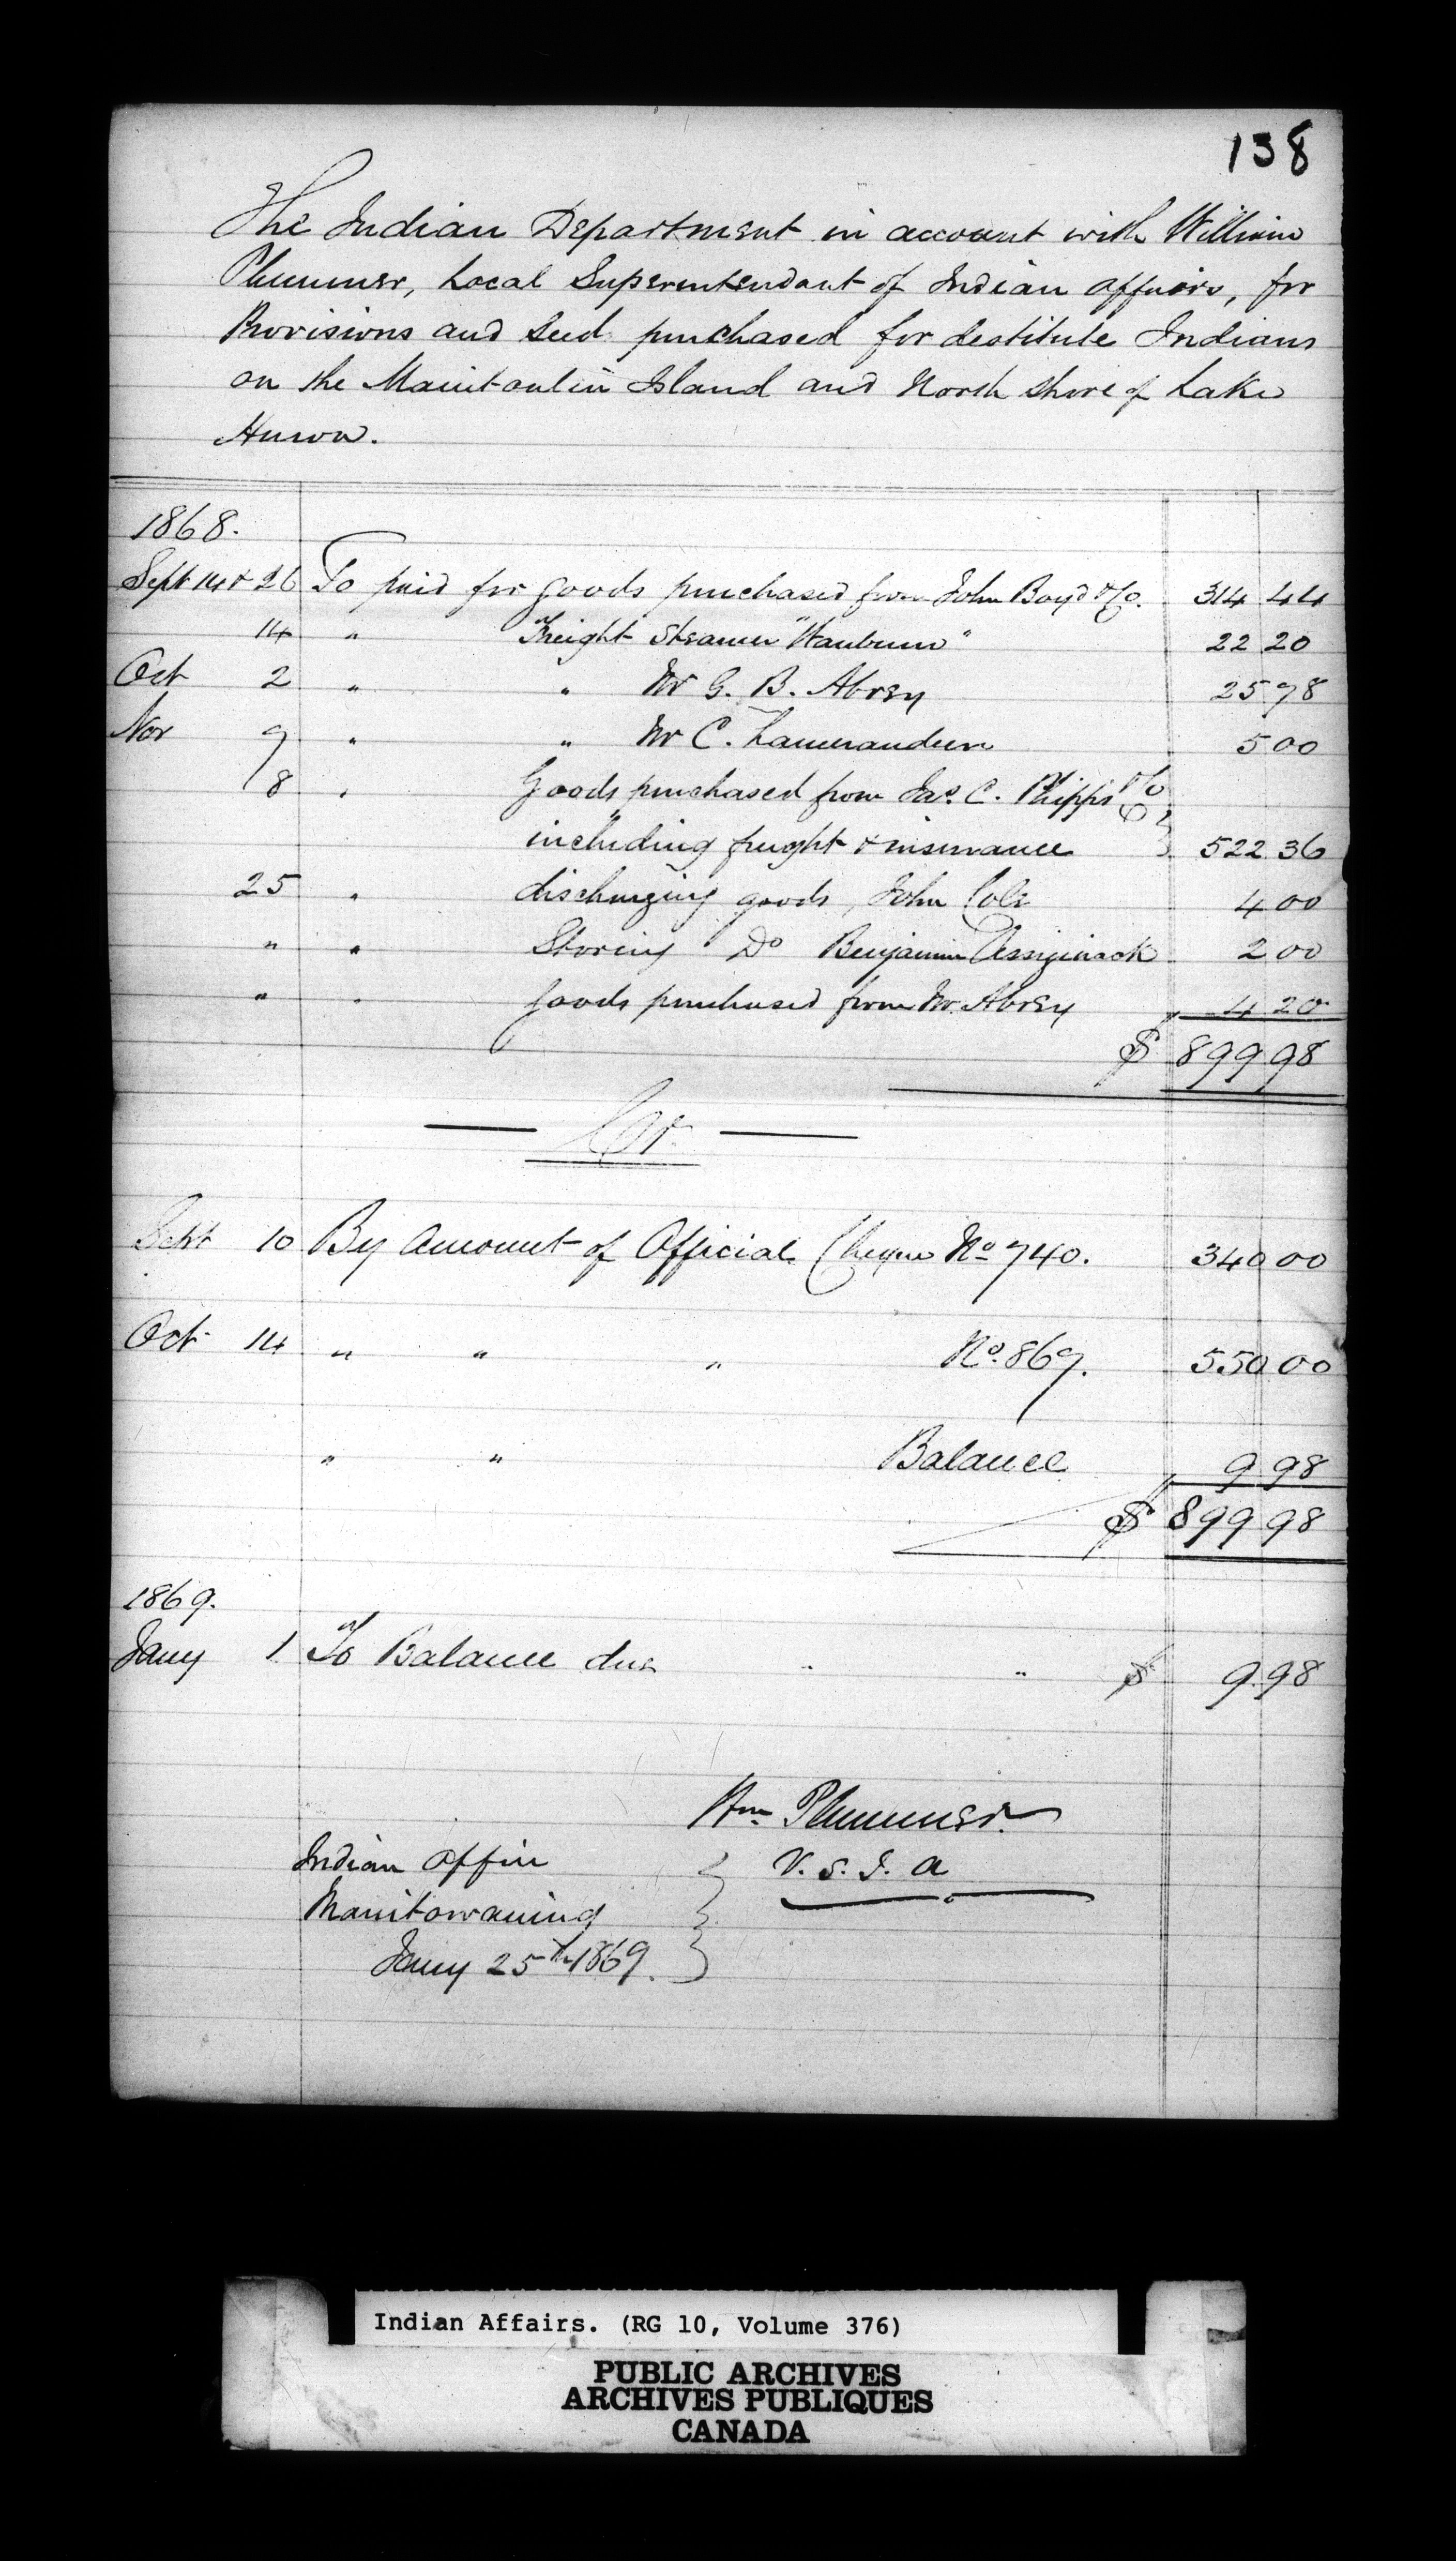 138
The Indian Department in account with William
Plummer, Local Superentendant of Indian Affairs, for
Provisions and Seed purchased for destitute Indians
on the Manitoulin Island and North Shore of Lake
Huron.
1868.
Sept 14 & 26 To paid for goods purchased from John Boyd & Co. 314 44
14 " Freight Steamer "Waubuno" 22 20
Oct 2 " " Mr G. B. Abrey 25 98
Nov 9 " " Mr C. 5 00
8 " Goods purchased from Jas. C. Phipps & Co
including freight & insurance 522 36
25 " discharging goods, John Cole 4 00
" " Storing Do Benjamin Assiginack 2 00
" " goods purchased from Mr. Abrey 4 20
$ 899 98
Cr.
Sept 10 By Amount of Official Cheque No 740. 340 00
Oct 14 " " " No. 869. 550 00
" " Balance 9 98
$ 899 98
1869.
Jany 1 To Balance due " " $ 9.98
Wm Plummer.
Indian Office V. S. I. A
Manitowaning
Jany 25th 1869.
Indian Affairs. (RG 10, Volume 376)
PUBLIC ARCHIVES
ARCHIVES PUBLIQUES
CANADA